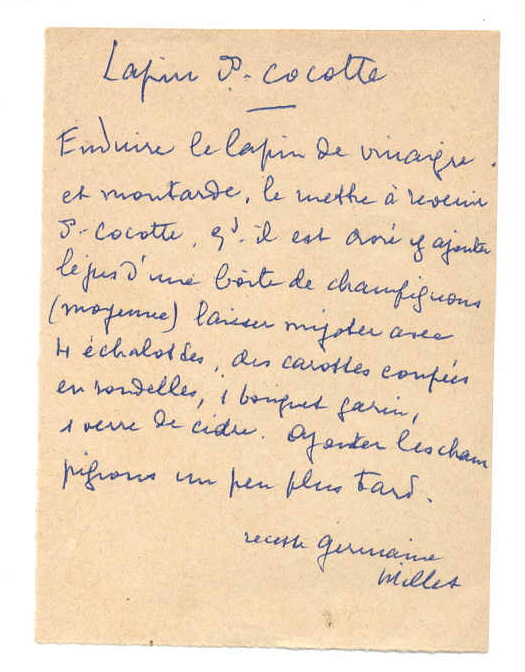 Lapin S- cocotte
Enduire le lapin de vinaigre
et moutarde, le mettre à revenir
S- cocotte, qd. il est doré y ajouter
le jus d'une boîte de champignons
(moyenne) laisser mijoter avec
4 échalottes, des carottes coupées
en rondelles, 1 bouquet garni,
1 verre de cidre. Ajouter les cham
pignons un peu plus tard.
recette Germaine
Millet